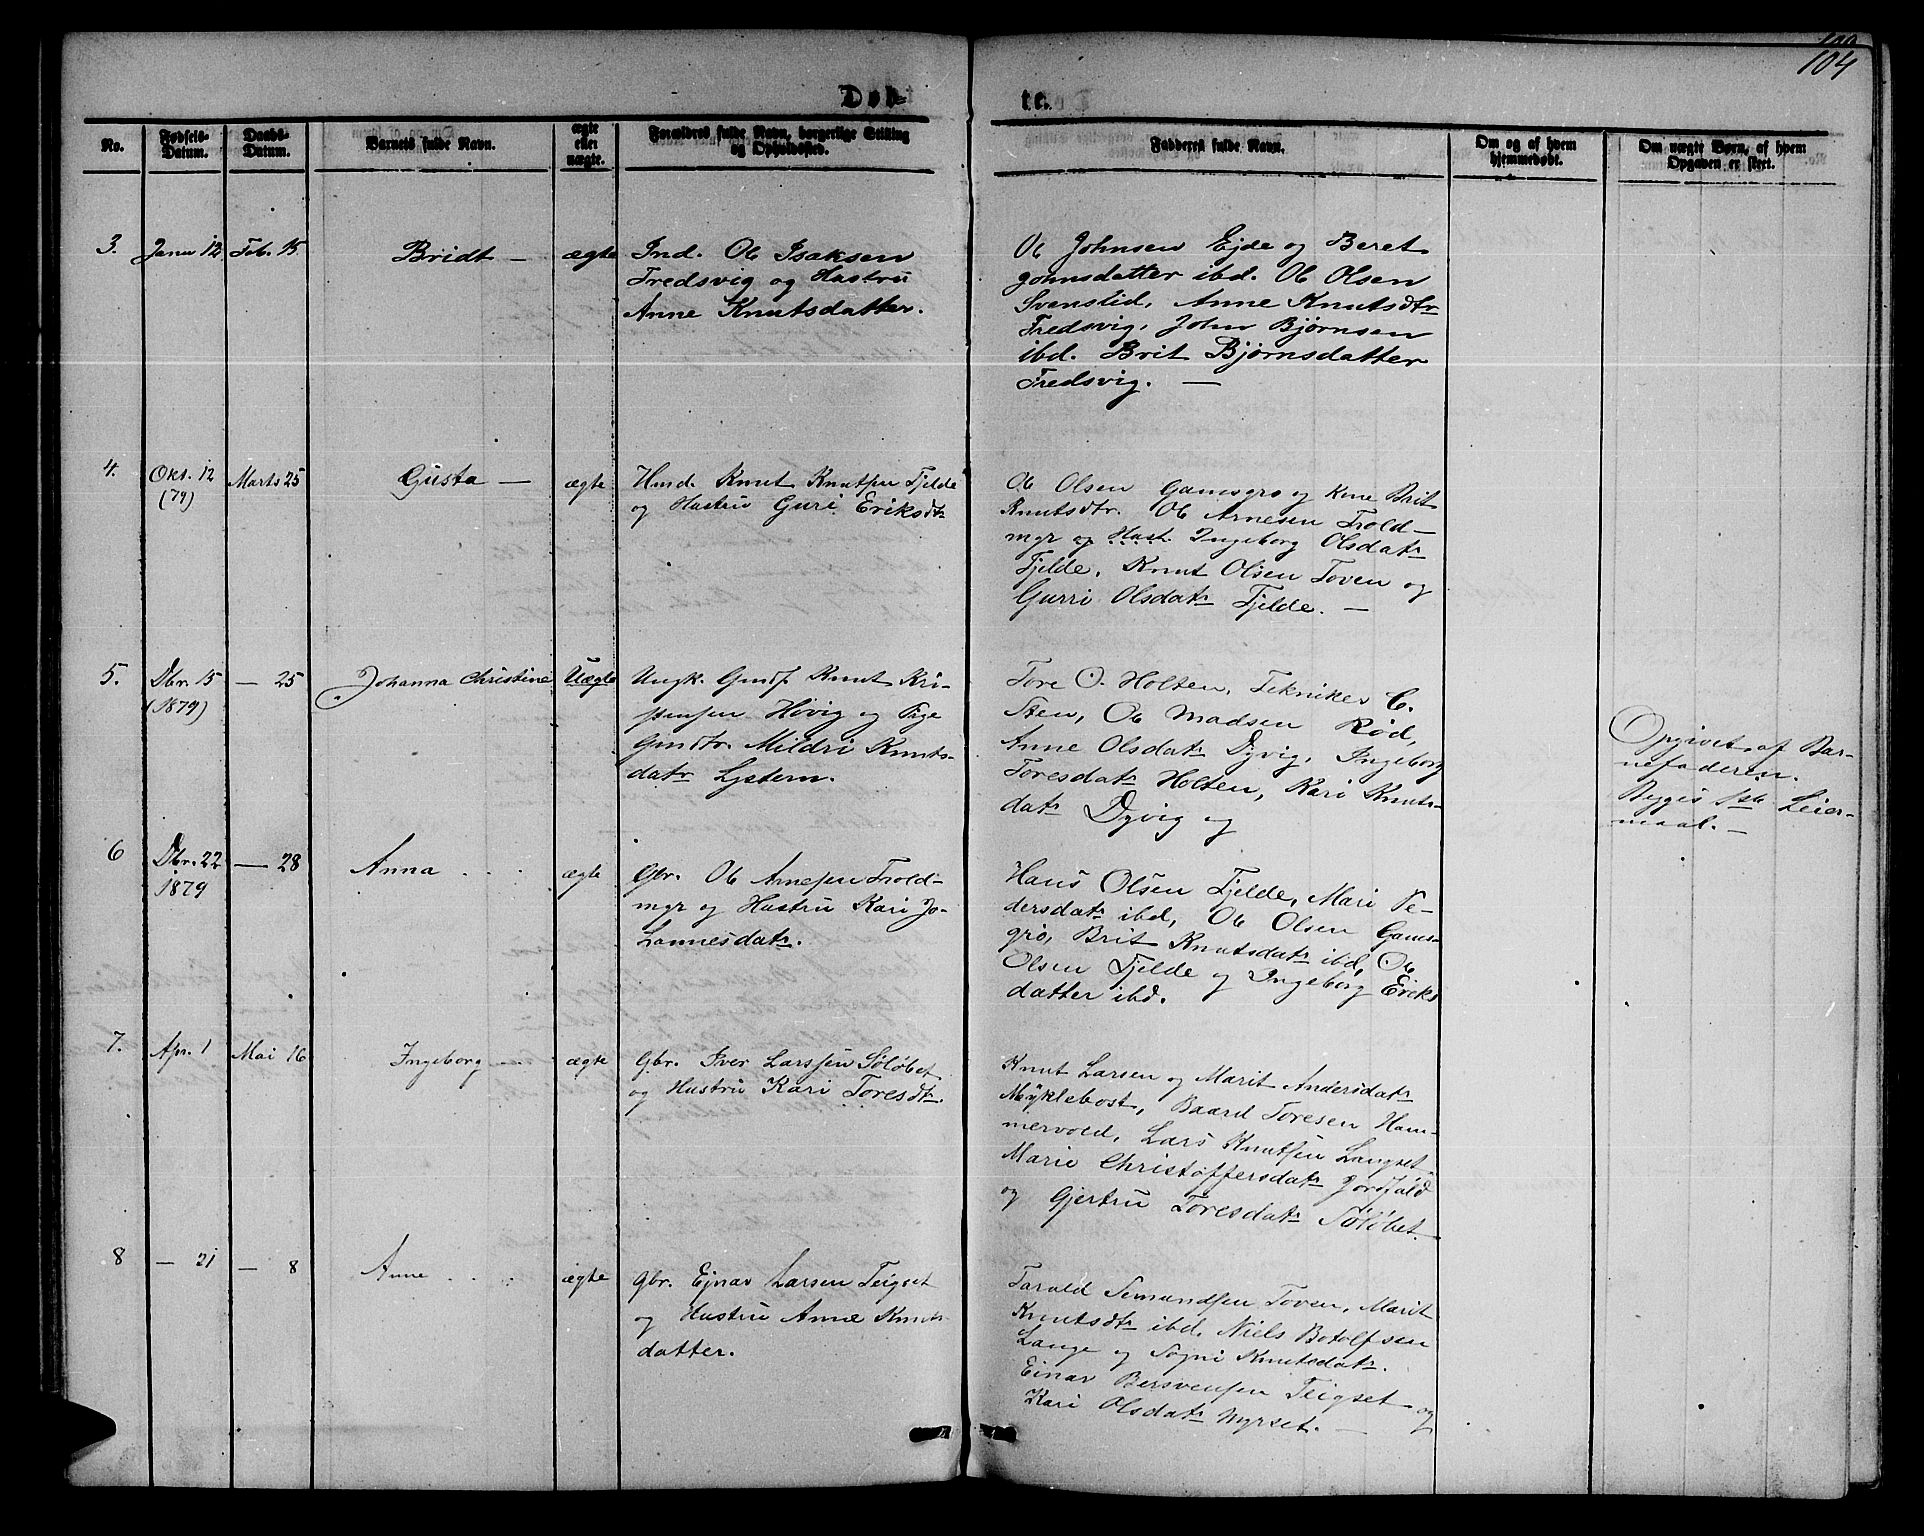 104
Døb-
te.
No.
Fødsels-
Datum.
Daabs-
Datum.
Barnets fulde Navn.
ægte
eller
uægte.
Forældres fulde Navn, borgerlige Stilling
og Opholdssted.
Fadderes fulde Navn.
Om og af hvem
hjemmedøbt.
Om uægte Børn, af hvem
Opgaven er skeet.
3. Janu 12 Feb. 15 Bridt — ægte
Ind. Ole Isaksen
Fredsvig og Hustru
Anne Knutsdatter.
Ole Johnsen Ejde og Beret
Johnsdatter ibd. Ole Olsen
Svenslid, Anne Knutsdtr
Fredsvig, John Bjørnsen
ibd. Brit Bjørnsdatter
Fredsvig. —
4. Okt. 12 Marts 25 Gusta — ægte
(79)
Knut Knutsen Fjelde
og Hustru Guri Eriksdtr
Ole Olsen Gamsgro og Kone Brit
Knutsdtr. Ole Arnesen Trold-
myr og Hust. Ingeborg Olsdatr
Fjelde, Knut Olsen Toven og
Gurri Olsdatr Fjelde. —
5. Dbr. 15 — 25 Johanna Christine Uægte
(1879)
Ungk. Gmdf. Knut Kri-
stensen Høvig og Pige
Gmdtr. Mildri Knuts-
datr Lystem.
Tore O. Holten, Tekniker C.
Sten, Ole Madsen Rød,
Anne Olsdatr Dyvig, Ingeborg
Toresdatr Holten, Kari Knuts-
datr Dyvig og
Opgivet af Bar-
nefaderen.
Begges 1ste Leier-
maal. —
6 Dbr. 22 — 28 Anna . . . . ægte
1879
Gbr. Ole Arnesen Trold-
myr og Hustru Kari Jo-
hannesdatr.
Hans Olsen Fjelde, Mari Pe-
dersdatr ibd, Ole Olsen Gams-
gro, Brit Knutsdatr ibd, Ole
Olsen Fjelde og Ingeborg Eriks
datter ibd.
7. Apr. 1 Mai 16 Ingeborg ægte
Gbr. Iver Larssen Søløbet
og Hustru Kari Toresdtr.
Knut Larsen og Marit Andersdatr
Myklebost, Baard Toresen Ham-
mervold, Lars Knutsen Langset
Marie Christoffersdatr
og Gjertru Toresdatr Søløbet.
8 — 21 — 8 Anne . . . . ægte
Gbr. Ejnar Larsen Teigset
og Hustru Anne Knuts-
datter.
Tarald Semundsen Toven, Marit
Knutsdtr ibd. Niels Botolfsen
Lange og Sogni Knutsdatr.
Einar Bersvensen Teigset og
Kari Olsdatr Myrset. —